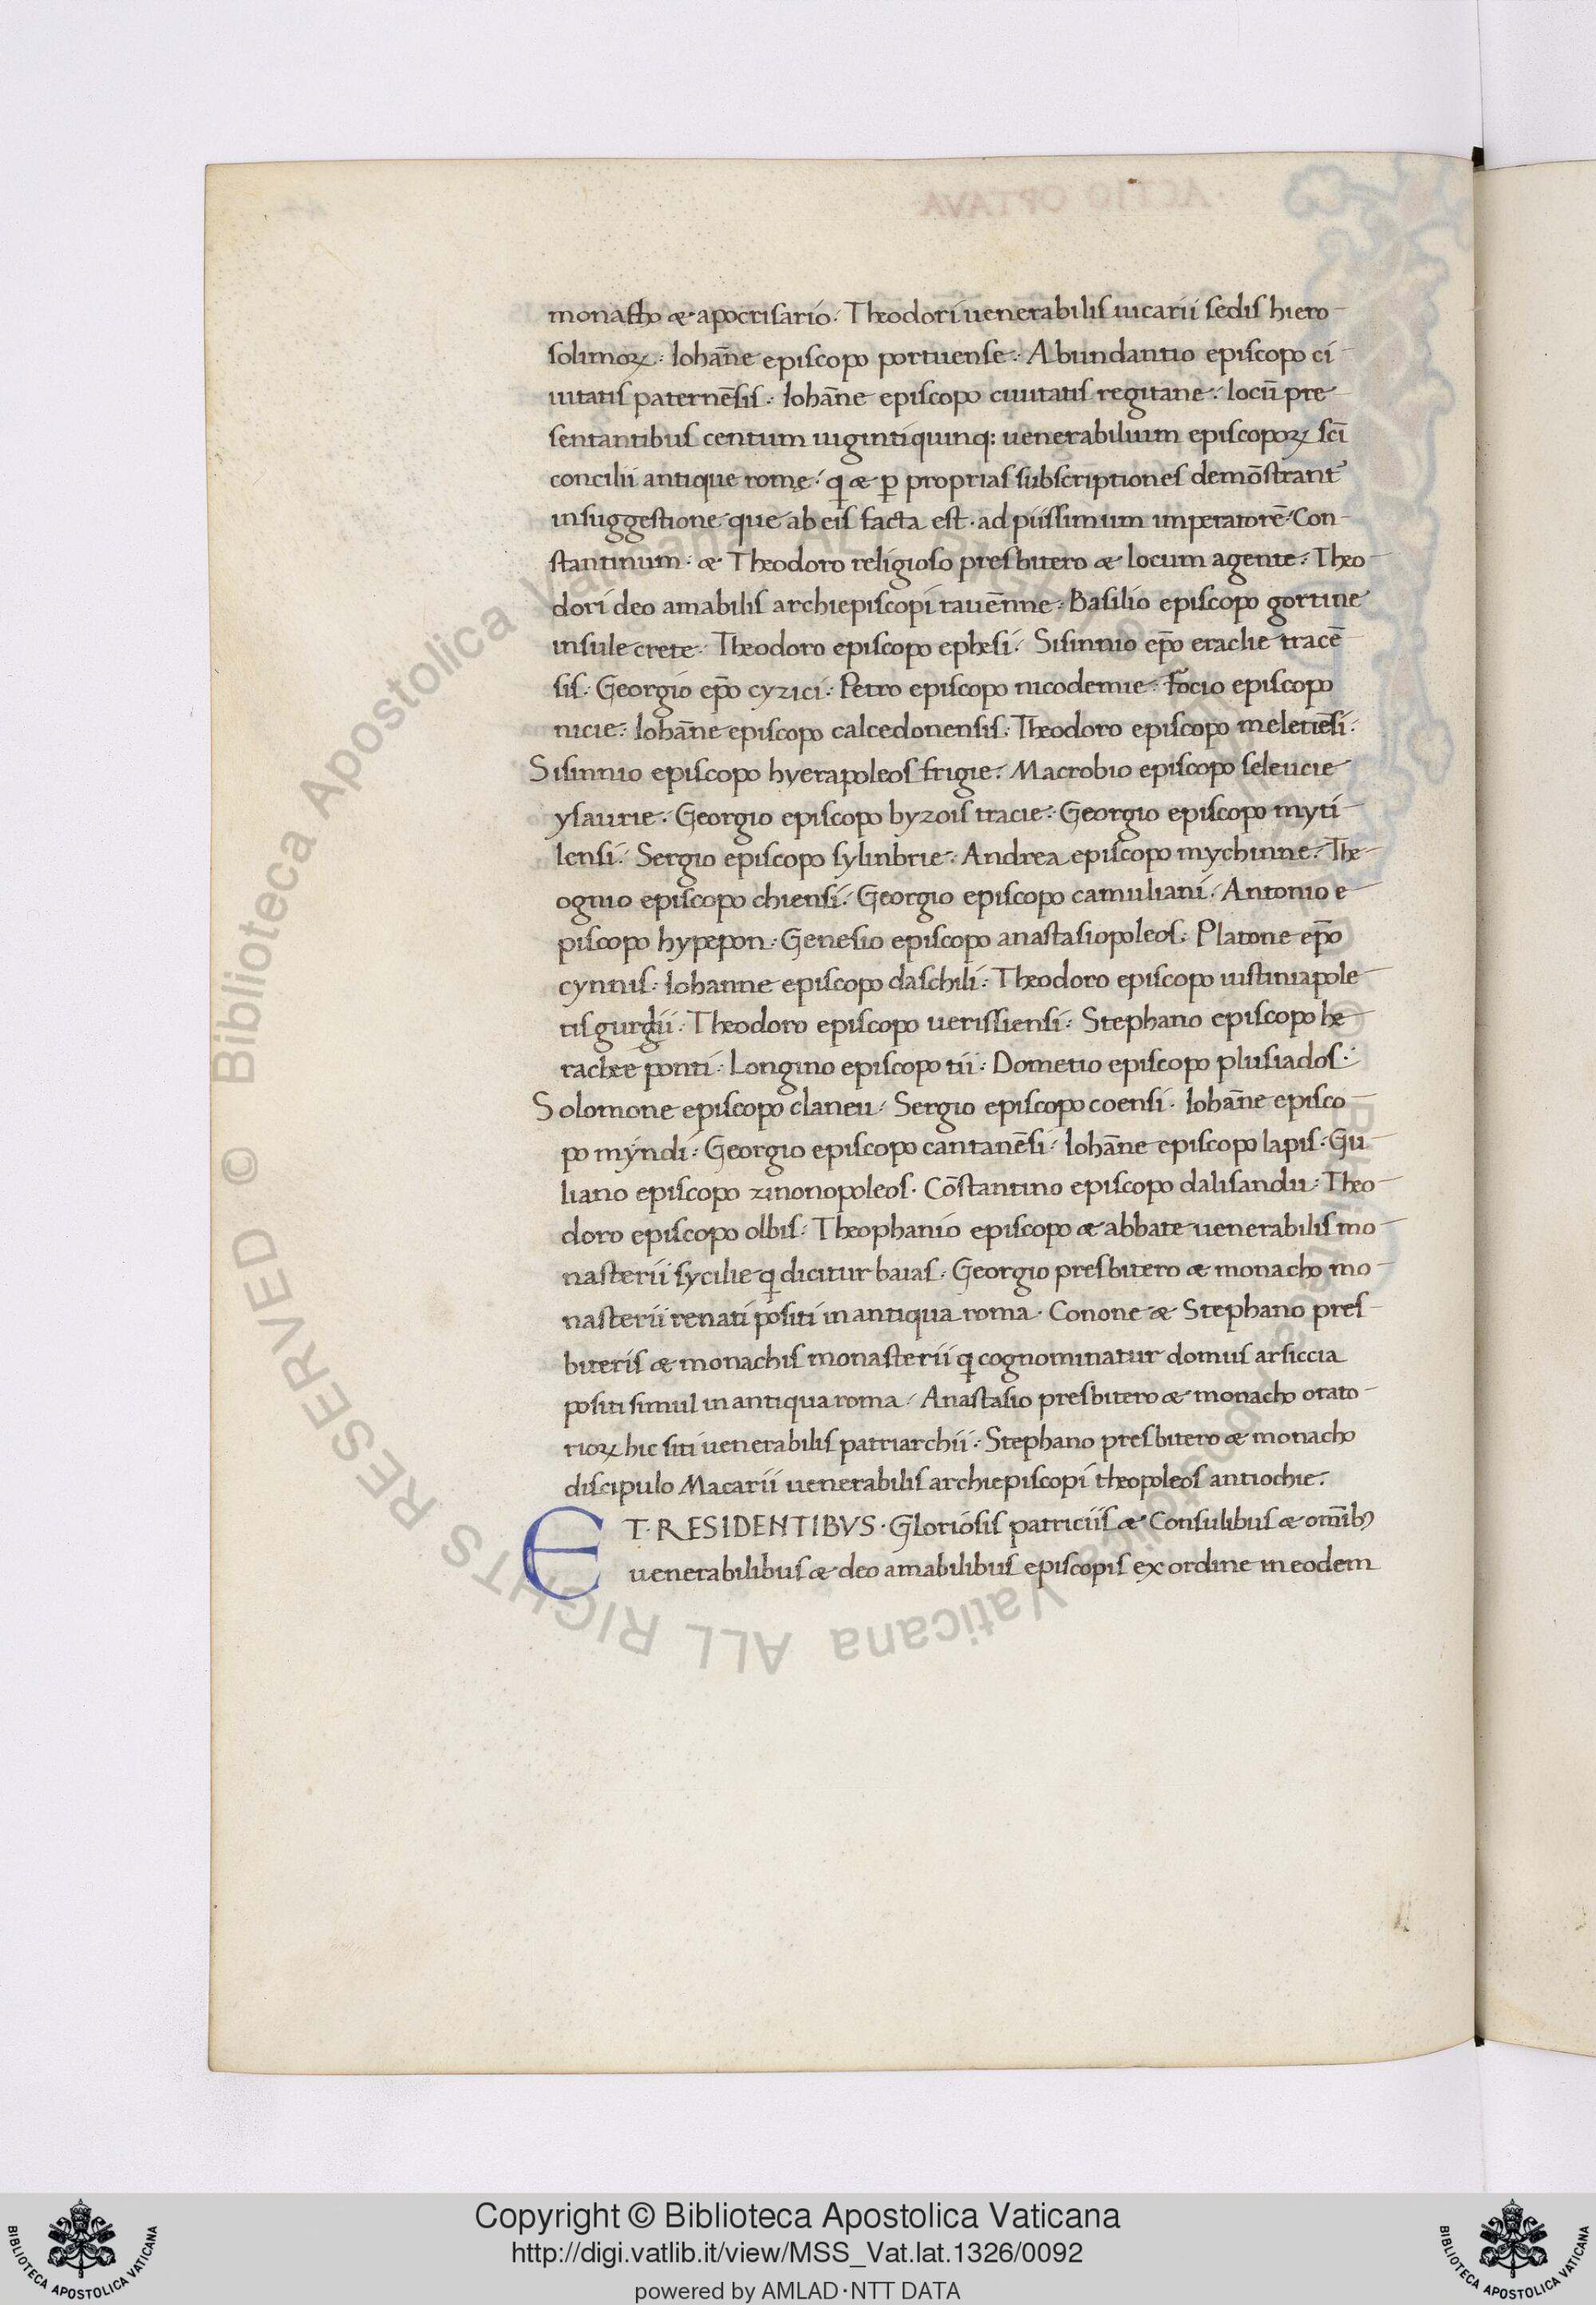 monacho & apocrisario. Theodori uenerabilis uicarii sedis hiero-
solimoꝝ. Iohāne episcopo portuense. Abundantio episcopo ci-
uitatis paternēsis. Iohāne episcopo ciuitatis regitane. locū pre
sentantibus centum uigintiquinq: uenerabilium episcopoꝝ sci̅
concilii antique romę. q & ꝑ proprias subscriptiones demōstrant̃
insuggestione que ab eis facta est. ad piissimum imperatorē Con-
stantinum. & Theodoro religioso presbitero & locum agente. Theo-
dori deo amabilis archiepiscopi rauēnne. Basilio episcopo gortine
insule crete. Theodoro episcopo ephesi. Sisinnio ep̄o eraclie tracē
sis. Georgio ep̄o cyzici. Petro episcopo nicodemie. Focio episcopo
nicie. Iohāne episcopo calcedonensis. Theodoro episcopo meletiēsi.
Sisinnio episcopo hyerapoleos frigie. Macrobio episcopo seleucie
ysaurie. Georgio episcopo byzois tracie. Georgio episcopo myti-
lensi. Sergio episcopo sylinbrie. Andrea episcopo mychinne. The-
ognio episcopo chiensi. Georgio episcopo camuliani. Antonio e-
piscopo hypepon. Genesio episcopo anastasiopoleos. Platone ep̄o
cynnis. Iohanne episcopo daschili. Theodoro episcopo iustiniapole-
tis gurdii. Theodoro episcopo uerissiensi. Stephano episcopo he-
raclee ponti. Longino episcopo tii. Dometio episcopo plusiados.
Solomone episcopo claneu. Sergio episcopo coensi. Iohāne episco-
po myndi. Georgio episcopo cantanēsi. Iohāne episcopo lapis. Gu-
liano episcopo zinonopoleos. Cōstantino episcopo dalisandu. Theo-
doro episcopo olbis. Theophanio episcopo & abbate uenerabilis mo-
nasterii sycilie q dicitur baias. Georgio presbitero & monacho mo-
nasterii renati positi in antiqua roma. Conone & Stephano pres-
biteris & monachis monasterii q cognominatur domus arsiccia
positi simul in antiqua roma. Anastasio presbitero & monacho orato-
rioꝝ hic siti uenerabilis patriarchii. Stephano presbitero & monacho
discipulo Macarii uenerabilis archiepiscopi theopoleos antiochie.
ET. RESIDENTIBVS. Gloriosis patriciis & Consulibus & omībꝰ
uenerabilibus & deo amabilibus episcopis ex ordine in eodem
© Biblioteca Apostolica Vaticana ALL RIGHTS RESERVED
Copyright © Biblioteca Apostolica Vaticana
http://digi.vatlib.it/view/MSS_Vat.lat.1326/0092
powered by AMLAD·NTT DATA
BIBLIOTECA APOSTOLICA VATICANA
BIBLIOTECA APOSTOLICA VATICANA